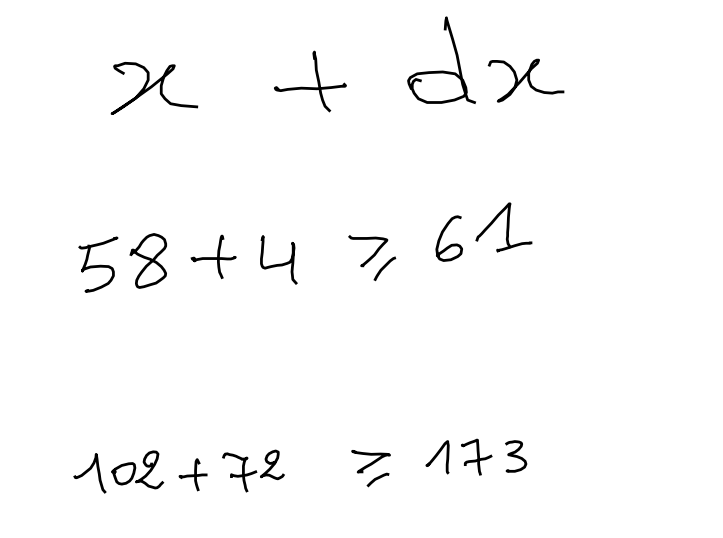 x + dx
58 + 4 ⩾ 61
102 + 72 ⩾ 173